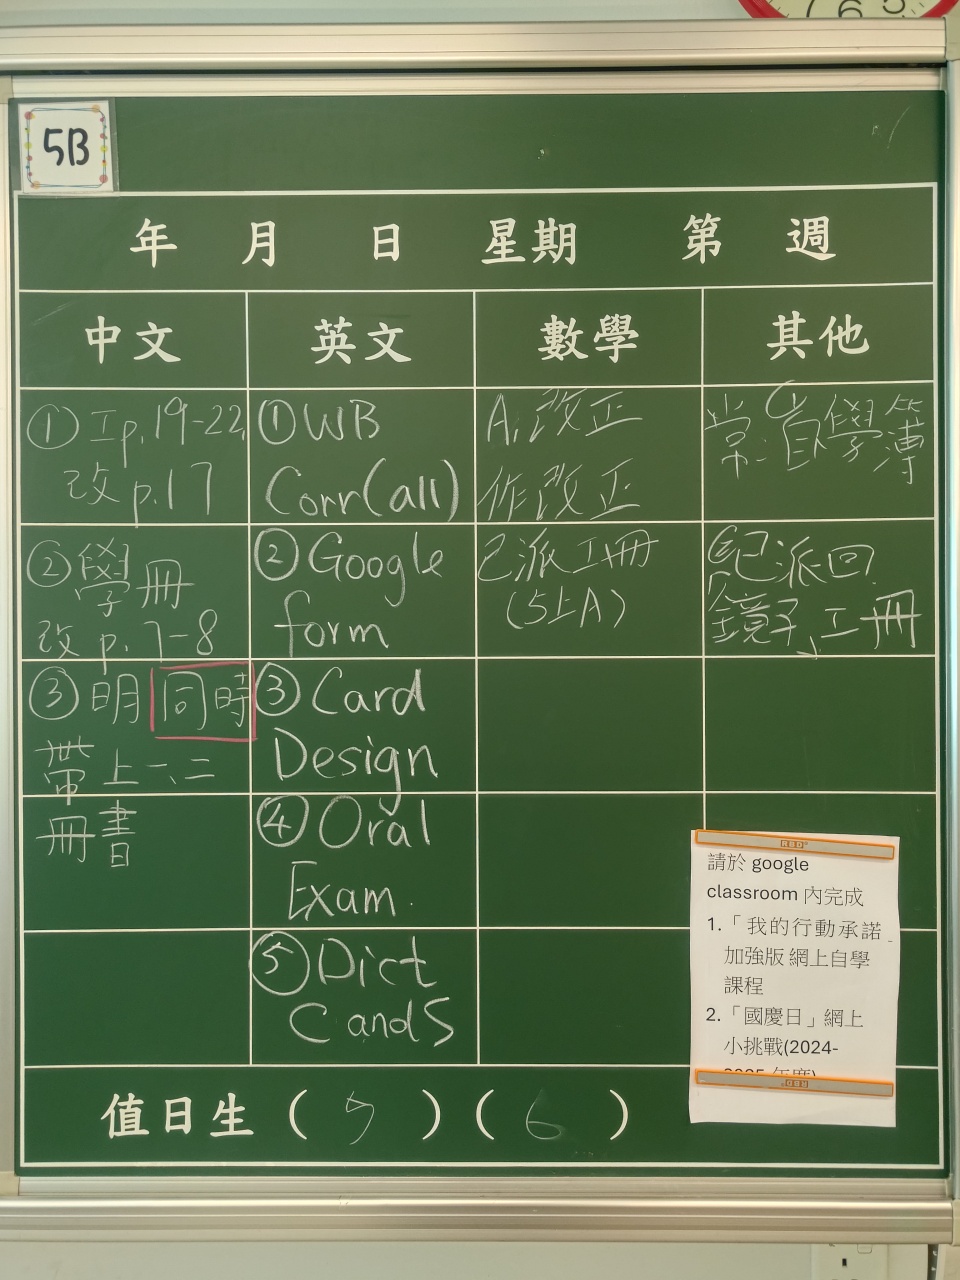 5B
年 月 日 星期 第 週
中文 英文 數學 其他
①工p.19-22
改 p.17
②學冊
改 p.7-8
③明同時
帶上一、二
冊書
①WB
Corr(all)
②Google
form
③Card
Design
④Oral
Exam.
⑤Dict
C and S
A.改正
作改正
已派工冊
(5上A)
常:自學簿
已派回
鏡子、工冊
請於 google
classroom 內完成
1.「我的行動承諾
加強版 網上自學
課程
2.「國慶日」網上
小挑戰(2024-
2025 年度)
值日生 ( 7 ) ( 6 )